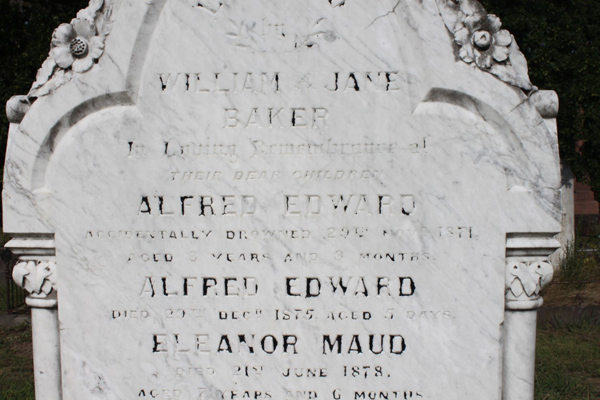 WILLIAM & JANE
BAKER
In Loving Remembrance of
THEIR DEAR CHILDREN
ALFRED EDWARD
ACCIDENTALLY DROWNED 29TH NOV. 1871,
AGED YEARS AND 8 MONTHS.
ALFRED EDWARD
DIED 29TH DECR 1875, AGED 5 DAYS.
ELEANOR MAUD
DIED 21ST JUNE 1878,
AGED 7 YEARS AND 6 MONTHS.